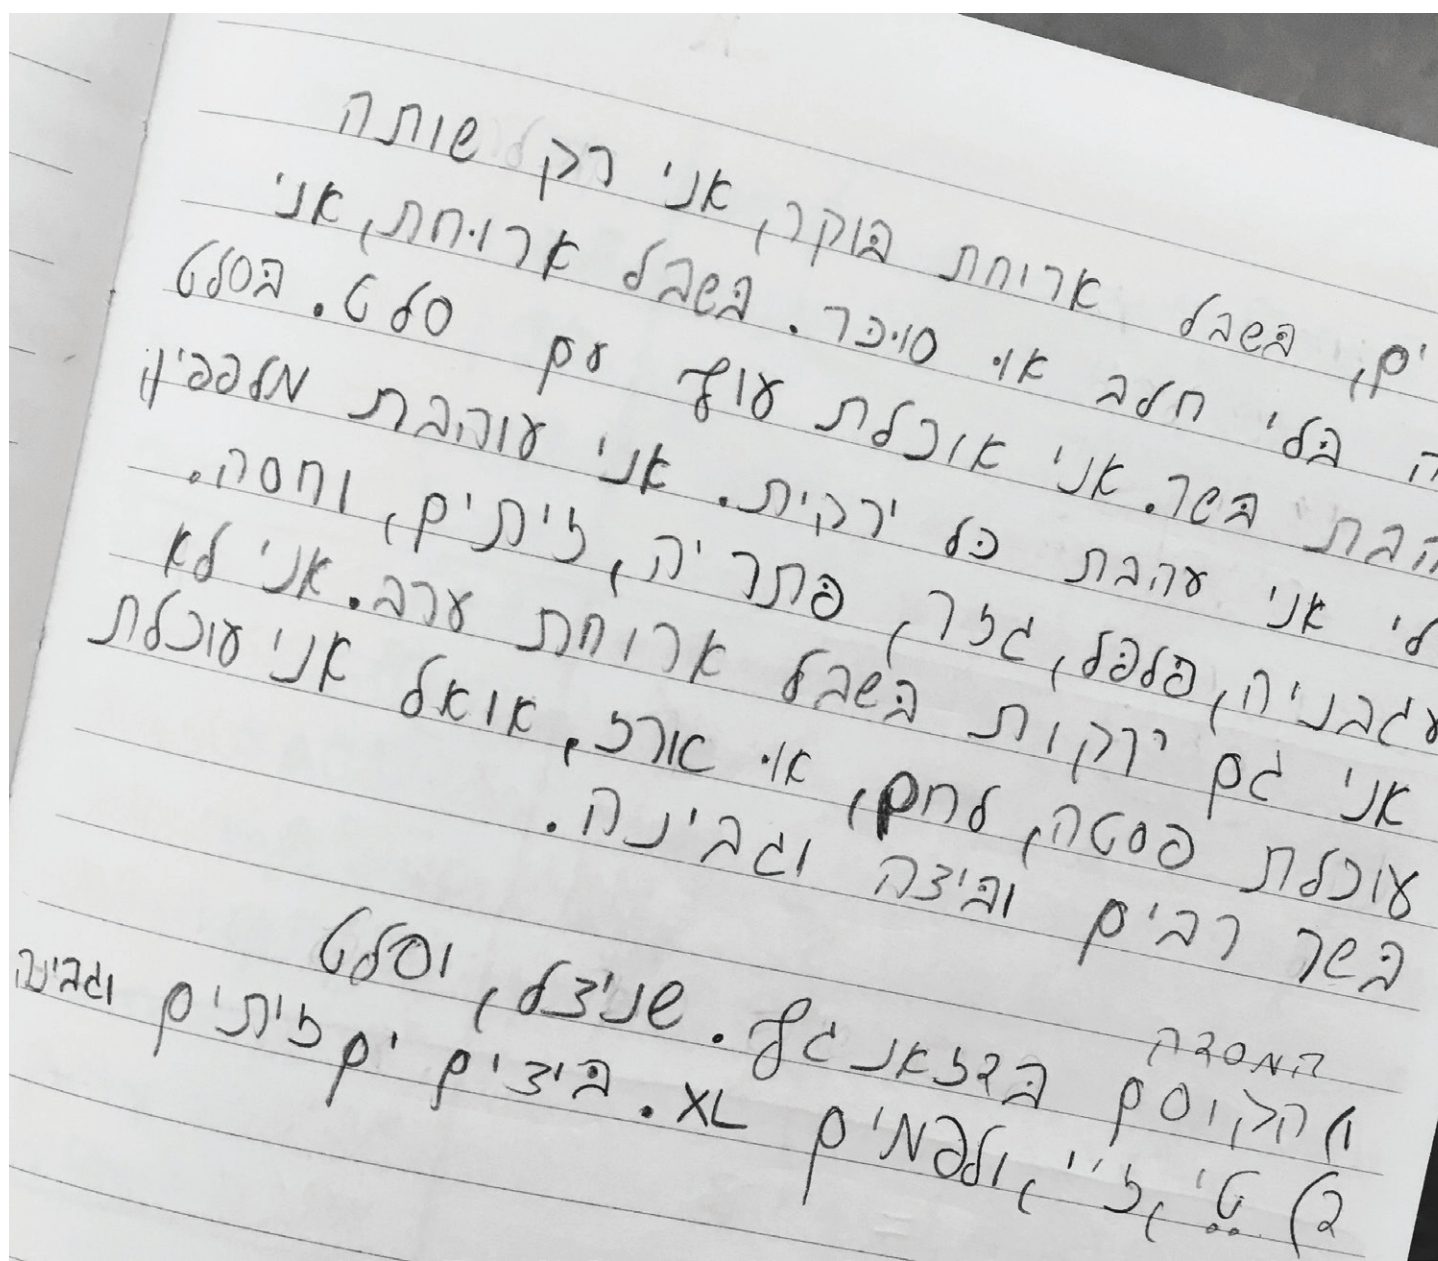 ים, בשבל ארוחת בוקר, אני רק שותה
ה בלי חלב או סוכר. בשבל ארוחת, אני
הבת בשר. אני אוכלת עוף עם סלט. בסלט
לי אני עהבת כל ירקית. אני עוהבת מלפפין,
עגבניה, פלפל, גזר, פתריה, זיתים, וחסה.
אני גם ירקות בשבל ארוחת ערב. אני לא
עוכלת פסטה, לחם, או אורז, אואל אני עוכלת
בשר רבים וביצה וגבינה.
המסדה
1) הקוסם בדזאנגף. שניצל, וסלט
2) ט' זי' ולפמים XL. ביצים ים זיתים וגבינה